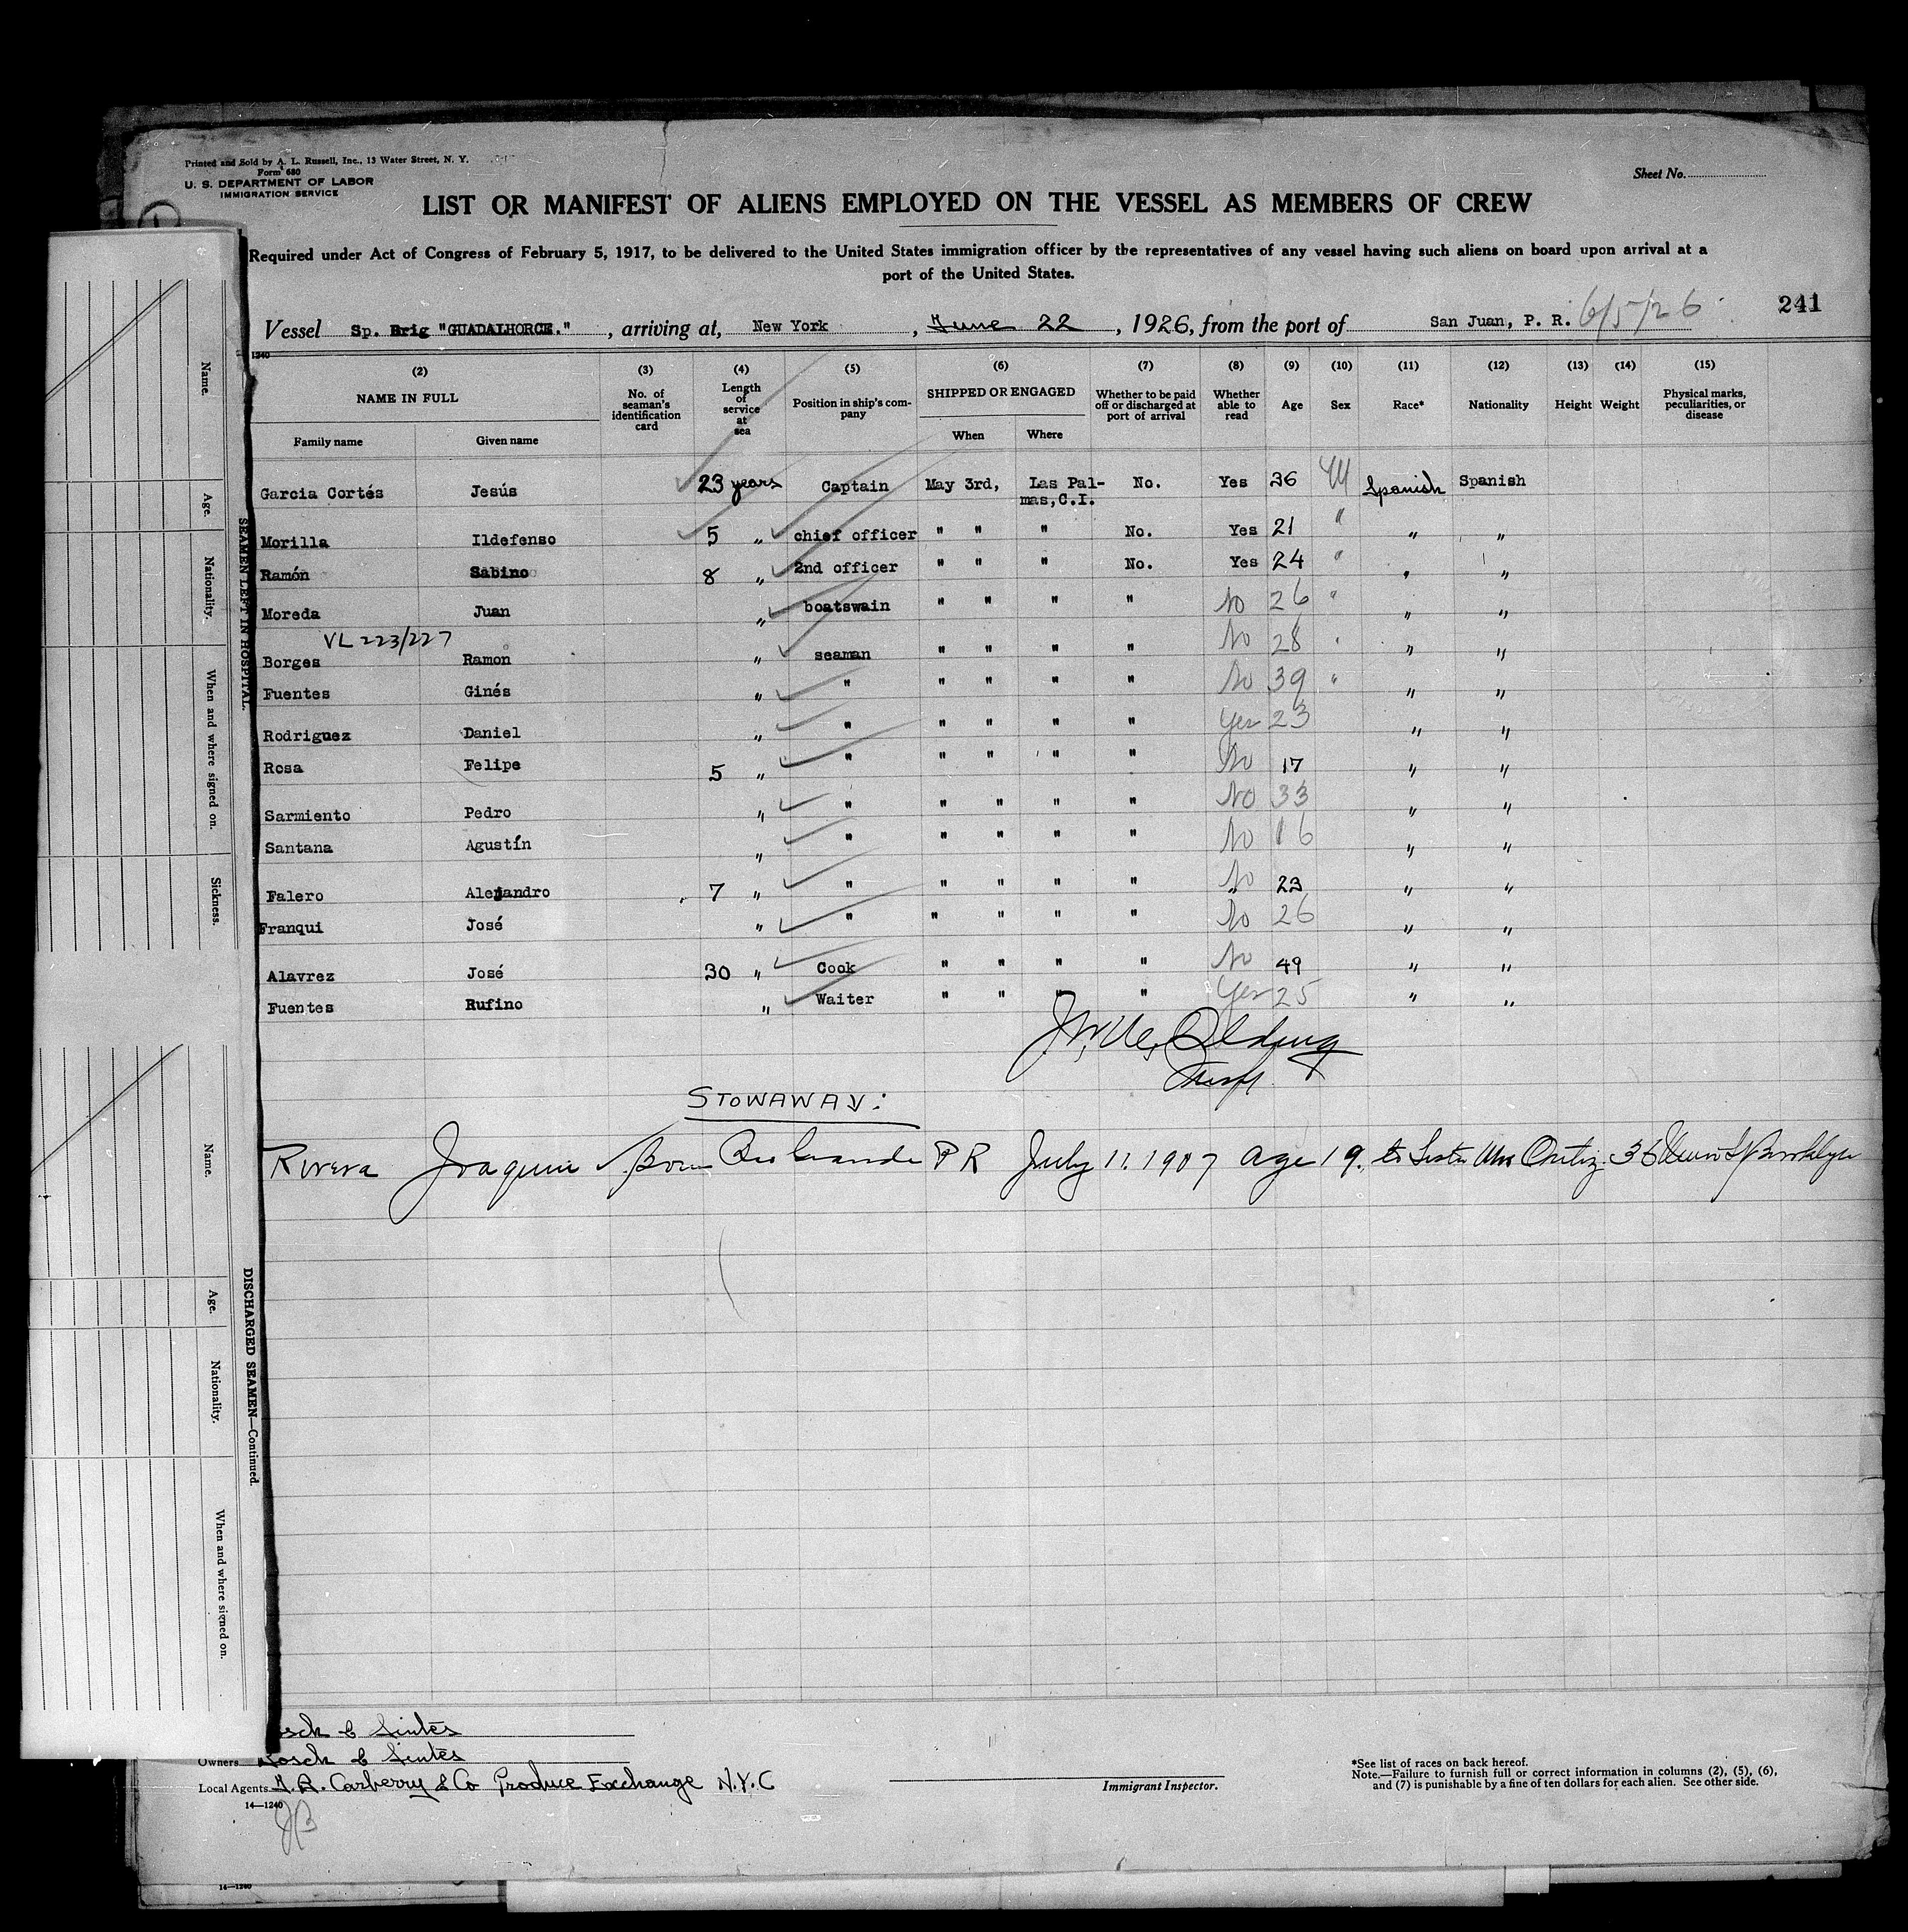 Printed and Sold by A. L. Russell, Inc., 13 Water Street, N. Y.
Form 680
U. S. DEPARTMENT OF LABOR
IMMIGRATION SERVICE
Sheet No.
LIST OR MANIFEST OF ALIENS EMPLOYED ON THE VESSEL AS MEMBERS OF CREW
Required under Act of Congress of February 5, 1917, to be delivered to the United States immigration officer by the representatives of any vessel having such aliens on board upon arrival at a
port of the United States.
241
Vessel Sp. Brig "GUADALHORCE." , arriving at, New York , June 22 , 1926, from the port of San Juan, P. R. 6/5/26
1240
(2) (3) (4) (5) (6) (7) (8) (9) (10) (11) (12) (13) (14) (15)
NAME IN FULL No. of seaman's identification card Length of service at sea Position in ship's company SHIPPED OR ENGAGED Whether to be paid off or discharged at port of arrival Whether able to read Age Sex Race* Nationality Height Weight Physical marks, peculiarities, or disease
Family name Given name When Where
Garcia Cortés Jesús 23 years Captain May 3rd, Las Pal- No. Yes 36 M Spanish Spanish
mas,C.I.
Morilla Ildefonso 5 " chief officer " " " No. Yes 21 " " "
Ramón Sabino 8 " 2nd officer " " " No. Yes 24 " " "
Moreda Juan " boatswain " " " " No 26 " " "
VL 223/227
Borges Ramon " seaman " " " " No 28 " " "
Fuentes Ginés " " " " " " No 39 " " "
Rodriguez Daniel " " " " " " Yes 23 " "
Rosa Felipe 5 " " " " " " No 17 " "
Sarmiento Pedro " " " " " " No 33 " "
Santana Agustín " " " " " " No 16 " "
Falero Alejandro 7 " " " " " " No 23 " "
Franqui José " " " " " " No 26 " "
Alavrez José 30 " Cook " " " " No 49 " "
Fuentes Rufino " Waiter " " " " Yes 25 " "
STOWAWAY:
Rivera Joaquin Born Rio Grande P R July 11. 1907 age 19. to Sister Mrs Ortiz. 36 St Brooklyn
& Sintes
Owners Bosch & Sintes
Local Agents J. R. Carberry & Co Produce Exchange N.Y.C
14—1240
JB
Immigrant Inspector.
*See list of races on back hereof.
Note.—Failure to furnish full or correct information in columns (2), (5), (6),
and (7) is punishable by a fine of ten dollars for each alien. See other side.
14—1240
SEAMEN LEFT IN HOSPITAL.
Name.
Age.
Nationality.
When and where signed on.
Sickness.
DISCHARGED SEAMEN—Continued.
Name.
Age.
Nationality.
When and where signed on.